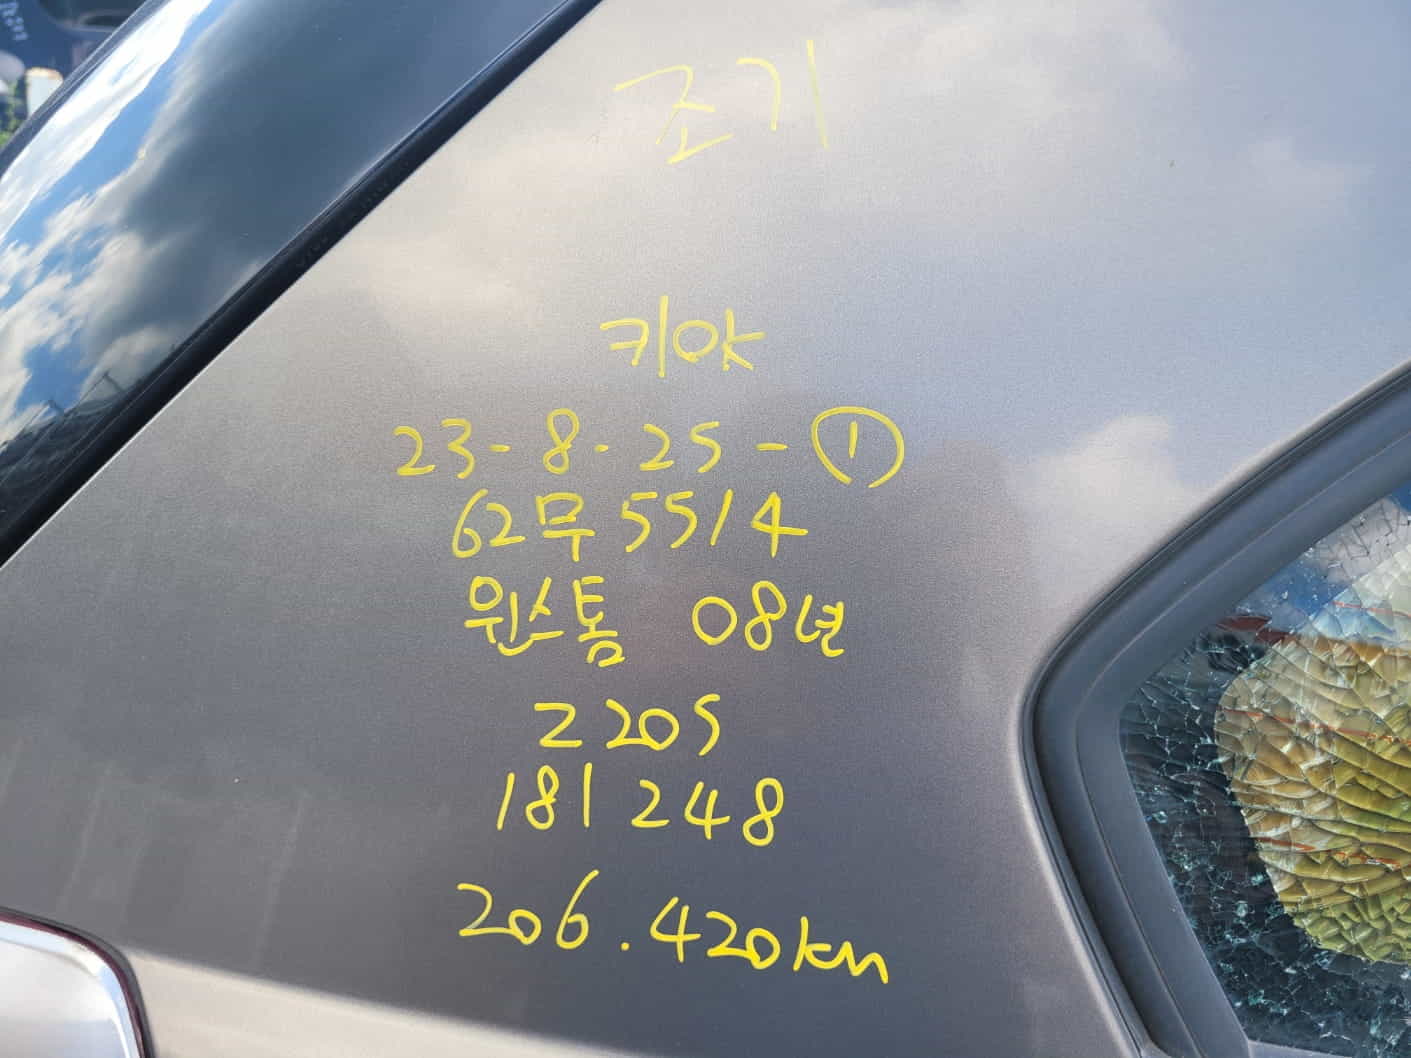 조기
키아
23-8-25-①
62무5514
윈스톰 08년
Z20S
181248
206.420km